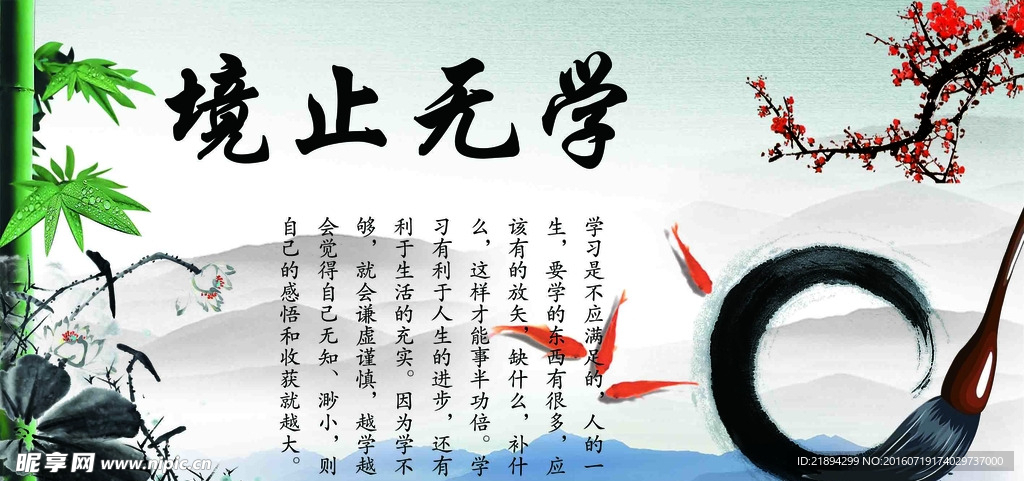 学无止境
学习是不应满足的，人的一
生，要学的东西有很多，应
该有的放矢，缺什么，补什
么，这样才能事半功倍。学
习有利于人生的进步，还有
利于生活的充实。因为学不
够，就会谦虚谨慎，越学越
会觉得自己无知、渺小，则
自己的感悟和收获就越大。
昵享网 www.nipic.cn
ID:21894299 NO:20160719174029737000